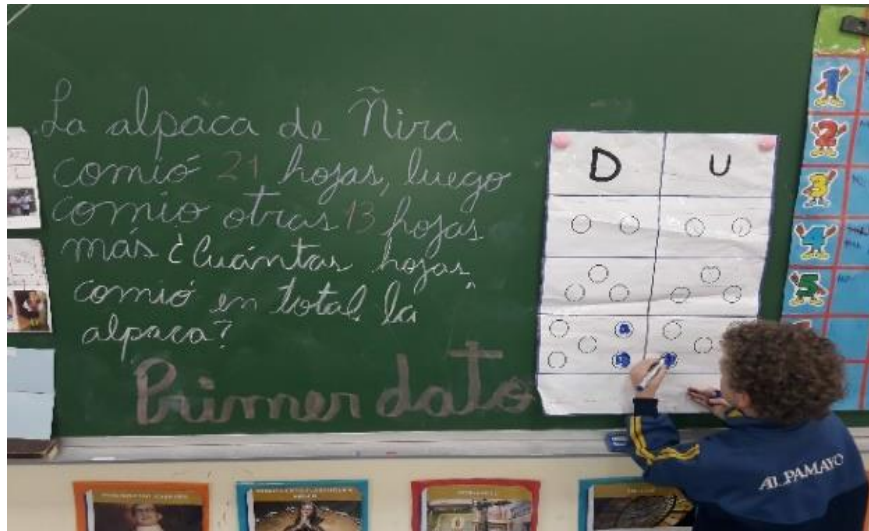 La alpaca de Ñira
comió 21 hojas, luego
comio otras 13 hojas
más ¿Cuántas hojas
comió en total la
alpaca?
Primer dato
D U
1
2
3
4
5
ALPAMAYO